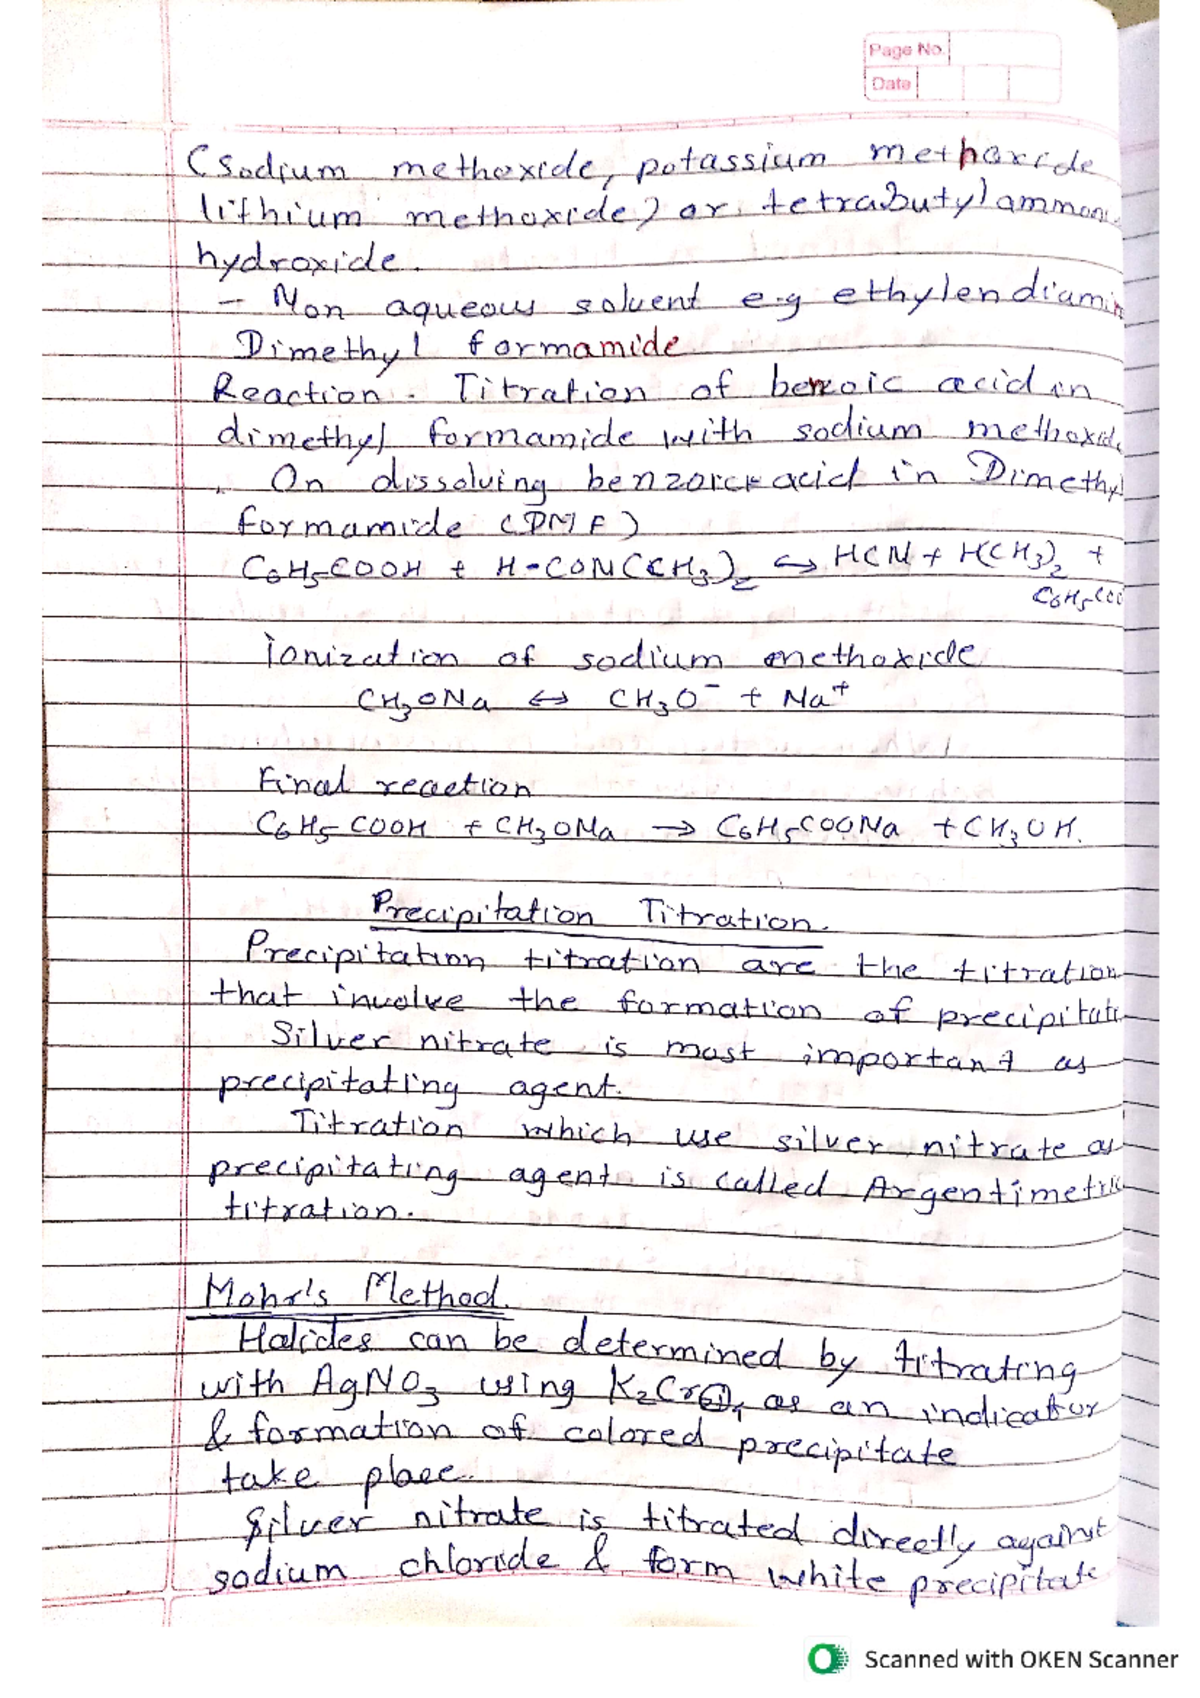 Page No.
Date
(Sodium methoxide, potassium methoxide
lithium methoxide) or tetrabutylammoni
hydroxide.
- Non aqueous solvent e.g ethylendiamin
Dimethyl formamide
Reaction. Titration of benzoic acid in
dimethyl formamide with sodium methoxide
On dissolving benzoic acid in Dimethyl
formamide (DMF)
C6H5COOH + H-CON(CH3)2 ⇔ HCN + H(CH3)2 +
C6H5COO
Ionization of sodium methoxide
CH3ONa ⇔ CH3O⁻ + Na⁺
Final reaction
C6H5COOH + CH3ONa → C6H5COONa + CH3OH.
Precipitation Titration.
Precipitation titration are the titration
that involve the formation of precipitate
Silver nitrate is most important as
precipitating agent.
Titration which use silver nitrate as
precipitating agent is called Argentimetric
titration.
Mohr's Method.
Halides can be determined by titrating
with AgNO3 using K2CrO4 as an indicator
& formation of colored precipitate
take place.
Silver nitrate is titrated directly against
sodium chloride & form white precipitate
Scanned with OKEN Scanner